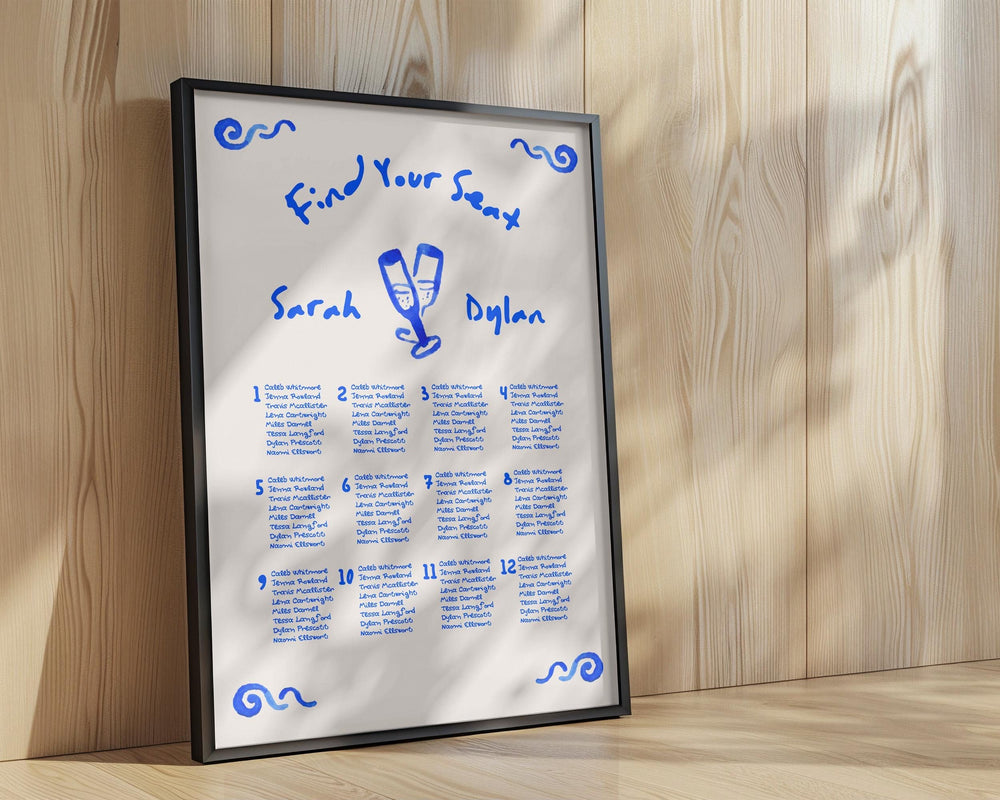 Find Your Seat
Sarah
Dylan
1 Caleb Whitmore
Jenna Rowland
Travis Mcallister
Lena Cartwright
Miles Darnell
Tessa Langford
Dylan Prescott
Naomi Ellsworth
2 Caleb Whitmore
Jenna Rowland
Travis Mcallister
Lena Cartwright
Miles Darnell
Tessa Langford
Dylan Prescott
Naomi Ellsworth
3 Caleb Whitmore
Jenna Rowland
Travis Mcallister
Lena Cartwright
Miles Darnell
Tessa Langford
Dylan Prescott
Naomi Ellsworth
4 Caleb Whitmore
Jenna Rowland
Travis Mcallister
Lena Cartwright
Miles Darnell
Tessa Langford
Dylan Prescott
Naomi Ellsworth
5 Caleb Whitmore
Jenna Rowland
Travis Mcallister
Lena Cartwright
Miles Darnell
Tessa Langford
Dylan Prescott
Naomi Ellsworth
6 Caleb Whitmore
Jenna Rowland
Travis Mcallister
Lena Cartwright
Miles Darnell
Tessa Langford
Dylan Prescott
Naomi Ellsworth
7 Caleb Whitmore
Jenna Rowland
Travis Mcallister
Lena Cartwright
Miles Darnell
Tessa Langford
Dylan Prescott
Naomi Ellsworth
8 Caleb Whitmore
Jenna Rowland
Travis Mcallister
Lena Cartwright
Miles Darnell
Tessa Langford
Dylan Prescott
Naomi Ellsworth
9 Caleb Whitmore
Jenna Rowland
Travis Mcallister
Lena Cartwright
Miles Darnell
Tessa Langford
Dylan Prescott
Naomi Ellsworth
10 Caleb Whitmore
Jenna Rowland
Travis Mcallister
Lena Cartwright
Miles Darnell
Tessa Langford
Dylan Prescott
Naomi Ellsworth
11 Caleb Whitmore
Jenna Rowland
Travis Mcallister
Lena Cartwright
Miles Darnell
Tessa Langford
Dylan Prescott
Naomi Ellsworth
12 Caleb Whitmore
Jenna Rowland
Travis Mcallister
Lena Cartwright
Miles Darnell
Tessa Langford
Dylan Prescott
Naomi Ellsworth